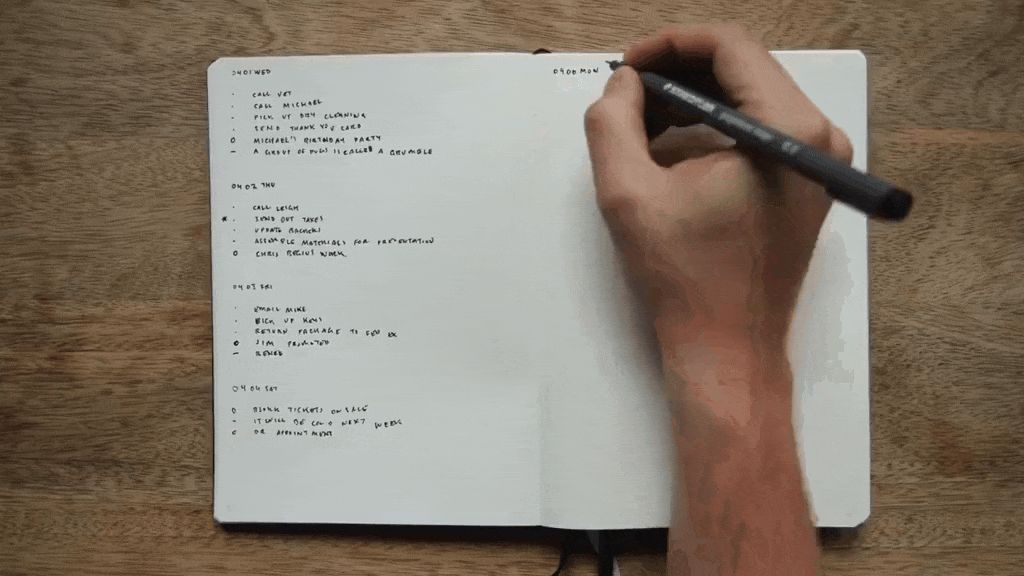 04 01 WED
· CALL VET
· CALL MICHAEL
· PICK UP DRY CLEANING
· SEND THANK YOU CARD
O MICHAEL'S BIRTHDAY PARTY
– A GROUP OF PUGS IS CALLED A GRUMBLE
04 02 THU
· CALL LEIGH
* · SEND OUT TAXES
· UPDATE BACKERS
· ASSEMBLE MATERIALS FOR PRESENTATION
O CHRIS BEGINS WORK
04 03 FRI
· EMAIL MIKE
· PICK UP KEYS
· RETURN PACKAGE TO FED EX
O JIM PROMOTED
–
04 04 SAT
O TICKETS ON SALE
– IT WILL BE COLD NEXT WEEK
O DR APPOINTMENT
MON
STAEDTLER